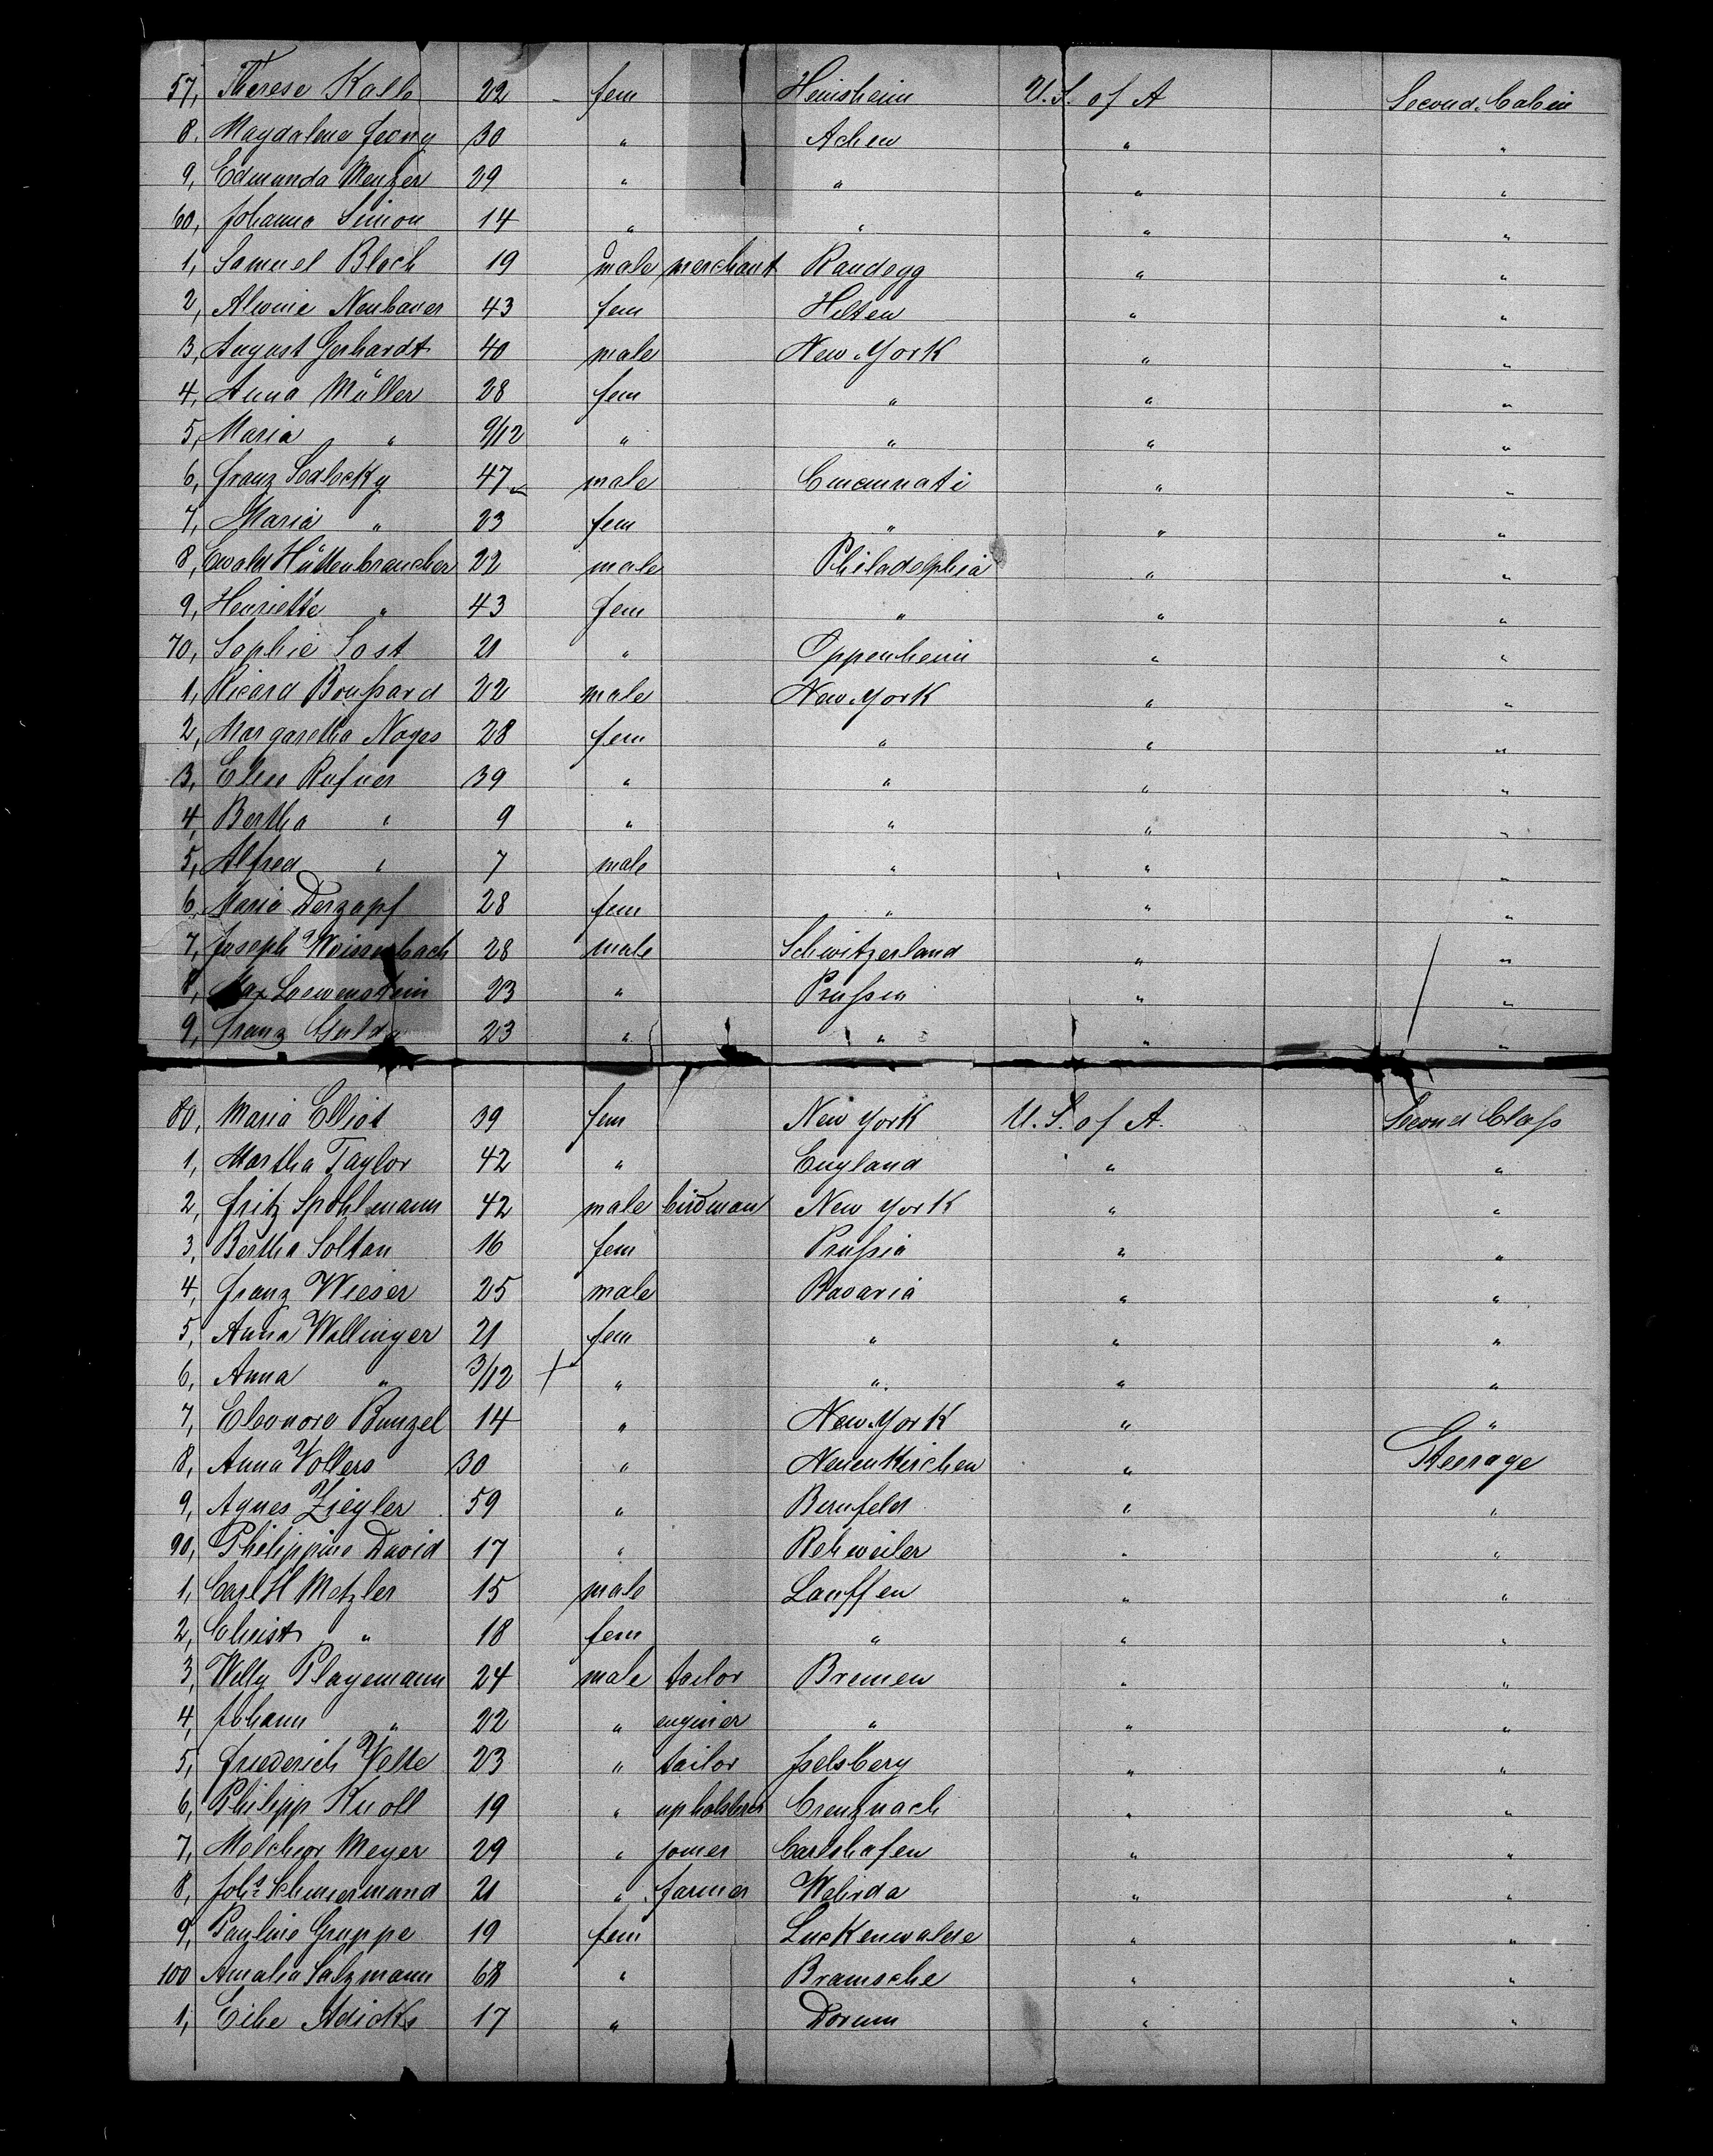 57, Therese Kalb 22 fem Heinsheim U. S. of A Second. Cabin
8. Magdalena Jeorg 30 " Achen " "
9, Edmunda Menzer 29 " " " "
60, Johanna Simon 14 " " " "
1, Samuel Bloch 19 male merchant Randegg " "
2, Alwine Neubauer 43 fem Hilten " "
3, August Gerhardt 40 male New York " "
4, Anna Müller 28 fem " " "
5, Maria " 9/12 " " " "
6, Franz Sedlecky 47 male Cincinnati " "
7, Maria " 23 fem " " "
8, Ewald Hüttenbraucher 22 male Philadelphia " "
9, Henriette " 43 fem " " "
70, Sophie Sost 21 " Oppenheim " "
1, Ricard Boußard 22 male New York " "
2, Margaretha Noyes 28 fem " " "
3, Elise Rufner 39 " " " "
4, Bertha " 9 " " " "
5, Alfred " 7 male " " "
6, Maria Derzapf 28 fem " " "
7, Joseph Weissenbach 28 male Schwitzerland " "
8, Max Loewenstein 23 " Prußia " "
9, Franz Gulde 23 " " " "
80, Maria Elliot 39 fem New York U. S. of A. Second Claß
1, Martha Taylor 42 " England " "
2, Fritz Spohlmann 42 male birdman New York " "
3, Bertha Soltan 16 fem Prußia " "
4, Franz Wieser 25 male Bavaria " "
5, Anna Wallinger 21 fem " " "
6, Anna " 3/12 + " " " "
7, Eleonore Bunzel 14 " New York " "
8, Anna Vollers 30 " Neuenkirchen " Steerage
9, Agnes Ziegler 59 " Bernfeld " "
90, Philippine David 17 " Rehweiler " "
1, Carl H Metzler 15 male Lauffen " "
2, Christ " 18 fem " " "
3, Willy Plagemann 24 male tailor Bremen " "
4, Johann " 22 " enginier " " "
5, Friederich Vette 23 " tailor Jselsberg " "
6, Philipp Knoll 19 " upholsterer Creuznach " "
7, Melchior Meyer 29 " joiner Carlshafen " "
8, Johs Schmermund 21 " farmer Wehrda " "
9, Pauline Gruppe 19 fem Luckenwalde " "
100 Amalia Salzmann 68 " Bramsche " "
1, Eibe Adicks 17 " Dorum " "